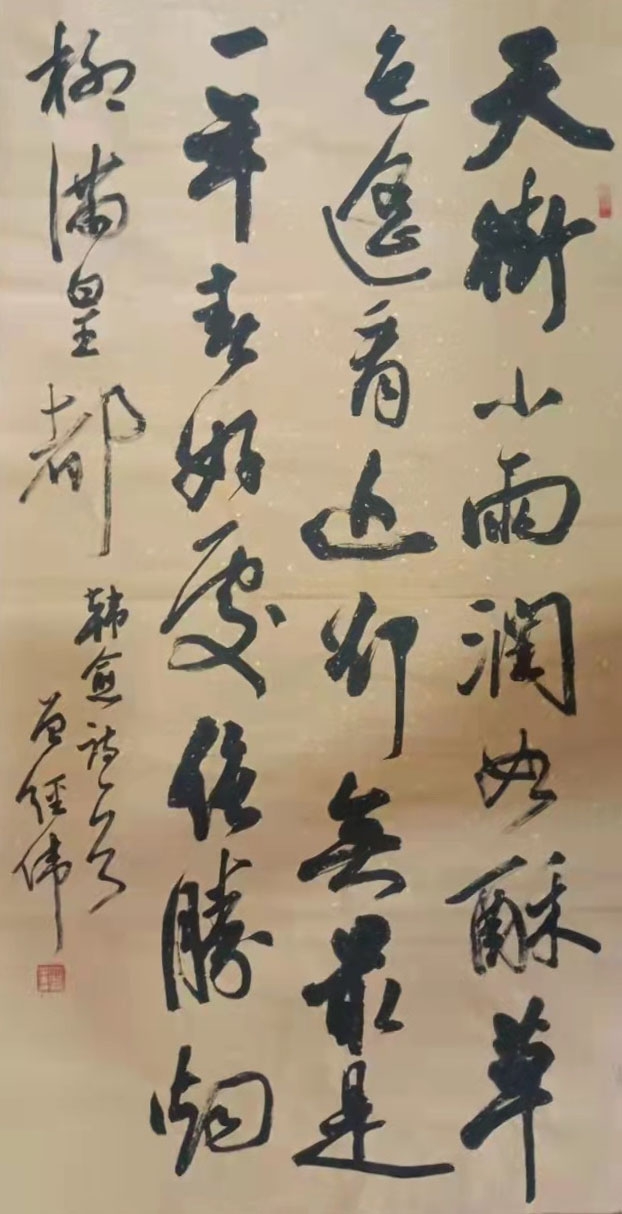 天街小雨润如酥草
色遥看近却无最是
一年春好处绝胜烟
柳满皇都
韩愈诗一首
曾经伟